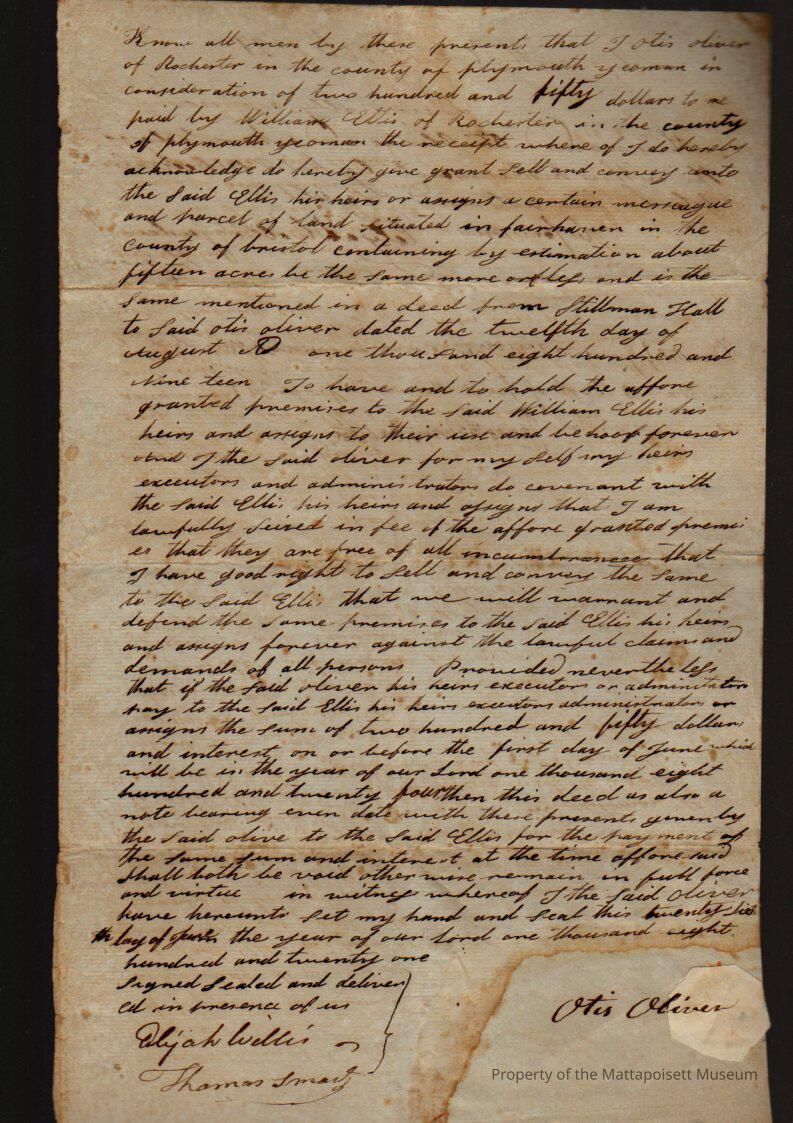 Know all men by these presents that I Otis oliver
of Rochester in the county of plymouth yeoman in
consideration of two hundred and fifty dollars to me
paid by William Ellis of Rochester in the county
of plymouth yeoman the receipt where of I do hereby
acknowledge do hereby give grant Sell and convey unto
the Said Ellis his heirs or assigns a certain messuague
and parcel of land situated in fairhaven in the
county of bristol containing by estimation about
fifteen acres be the same more or less and is the
same mentioned in a deed from Stillman Hall
to Said otis oliver dated the twelfth day of
August AD one thousand eight hundred and
Nine teen To have and to hold the affore
granted premises to the Said William Ellis his
heirs and assigns to their use and behoof forever
and I the Said oliver for my Self my heirs
executors and administrators do covenant with
the Said Ellis his heirs and assigns that I am
lawfully Seized in fee of the affore granted premis
es that they are free of all incumbrances that
I have good right to Sell and convey the same
to the Said Ellis that we will warrant and
defend the same premises to the Said Ellis his heirs
and assigns forever against the lawful claims and
demands of all persons Provided nevertheless
that if the Said oliver his heirs executors or administrators
pay to the Said Ellis his heirs executors administrators or
assigns the sum of two hundred and fifty dollars
and interest on or before the first day of June which
will be in the year of our Lord one thousand eight
hundred and twenty four then this deed as also a
note bearing even date with these presents given by
the Said olive to the Said Ellis for the payment of
the same sum and interest at the time afforesaid
shall both be void otherwise remain in full force
and virtue in witness whereof I the Said Oliver
have hereunto Set my hand and Seal this twenty-
the year of our lord one thousand eight
hundred and twenty one
Signed Sealed and deliver
ed in presence of us
Otis Oliver
Elijah Willis
Thomas Smart
Property of the Mattapoisett Museum